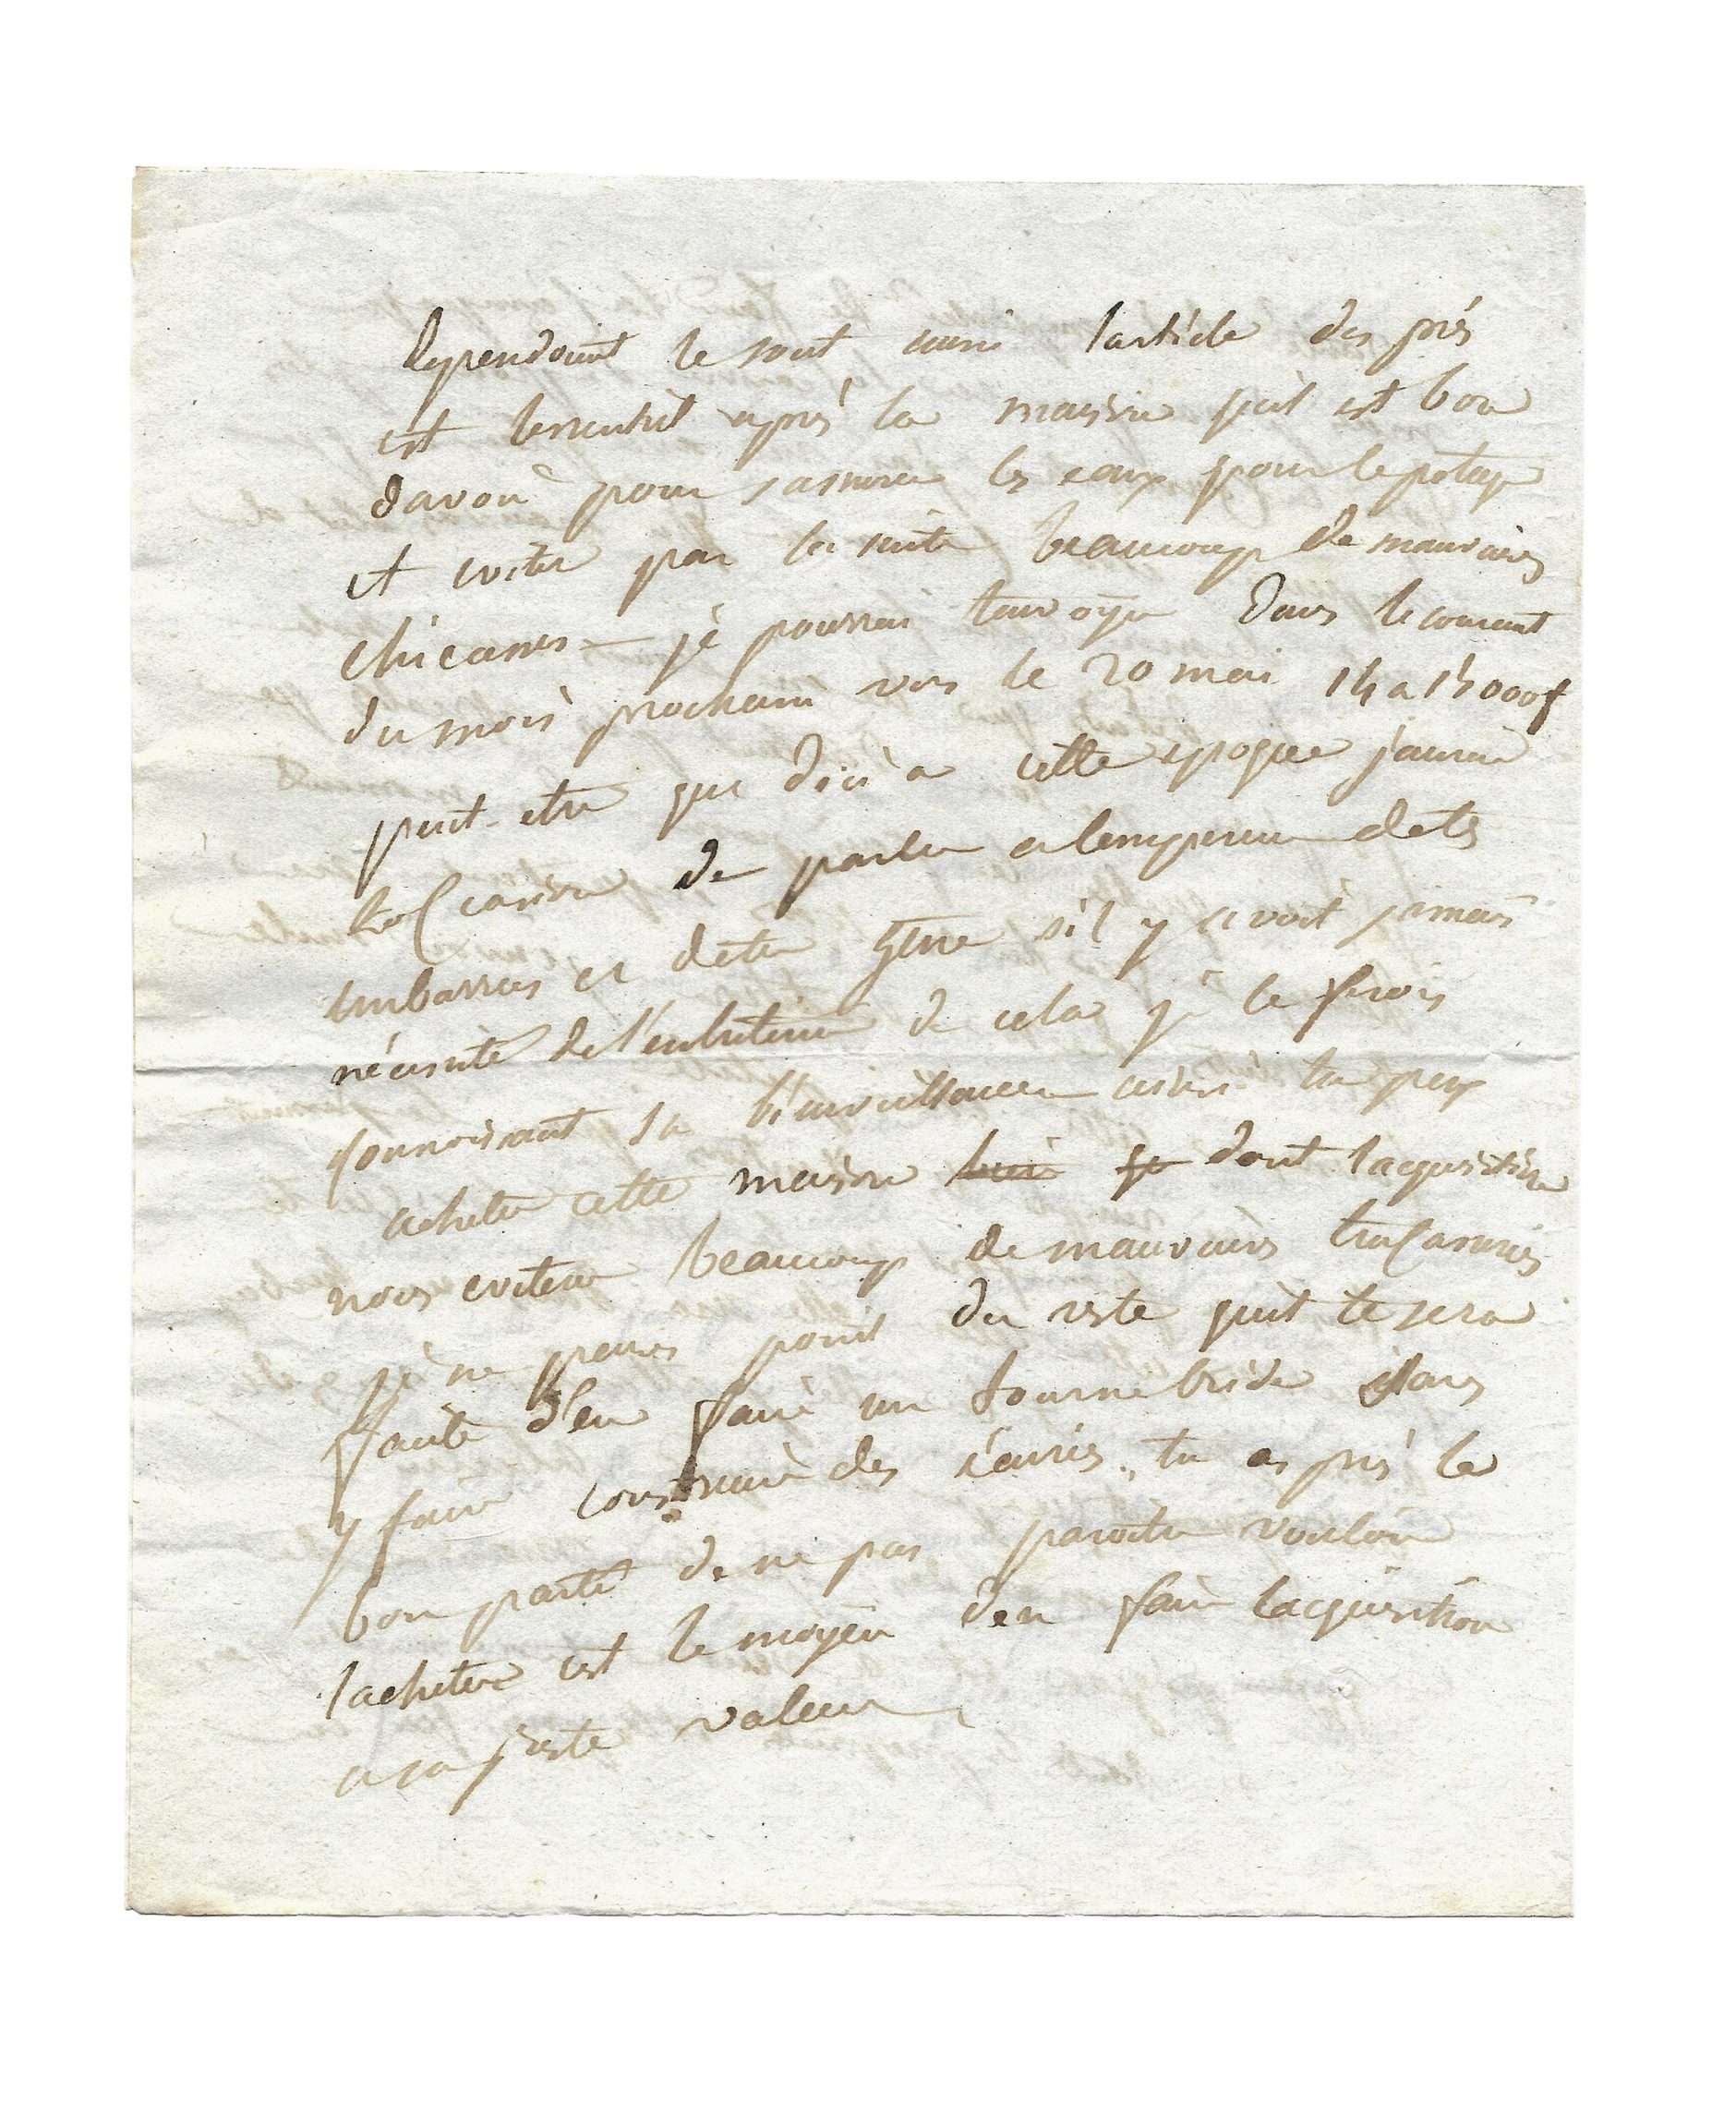 Cependant le sont aussi larticle des prés
est lessentiel après la maison quil est bon
davoir pour sassurer les eaux pour le potager
et eviter par la suite beaucoup de mauvaises
chicannes – je pourrai tenvoyer dans le courant
du mois prochain vers le 20 mai 14 a 15000f
peut-etre que dici a cette epoque jaurai
loccasion de parler a lempereur de tes
embarras et de ta gene sil y avoit jamais
nécessité de l'entretenir de cela je le ferois
connoissant sa bienveillance ainsi tu peux
acheter cette maison dont lacquisition
nous evitera beaucoup de mauvaises tracasseries
je ne pense point du reste quil te sera
facile d'en faire un tournebride sans
y faire construire des écuries. tu as pris le
bon parti de ne pas paroitre vouloir
lacheter cest le moyen den faire lacquisition
a sa juste valeur